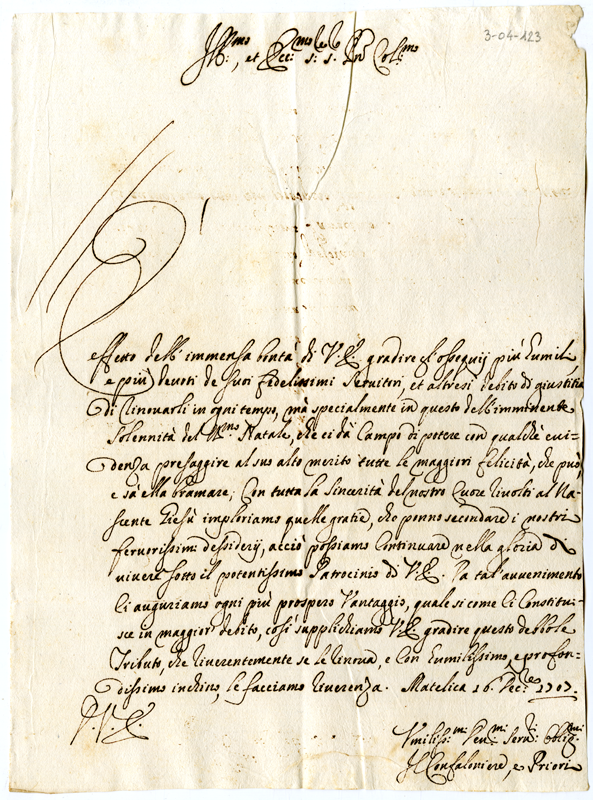 3-04-123
Ill.mo, et Ecc.mo S.r S.r Pron Col.mo
Effetto dell'immensa bontà di V.E. gradire gl'ossequij più humili
e più devoti de suoi fedelissimi servitori, et altresi debito di giustitia
di rinovarli in ogni tempo, mà specialmente in questo dell'imminente
Solennità del S.mo Natale, che ci dà Campo di potere con qualche evi-
denza presaggire al suo alto merito tutte le maggiori felicità, che può,
e sà ella bramare; Con tutta la sincerità del nostro Cuore rivolti al Na-
scente Giesù imploriamo quelle gratie, che ponno secondare i nostri
fervorissimi dessiderij, acciò possiamo Continuare nella gloria di
vivere sotto il potentissimo Patrocinio di V.E. Da tal'avvenimento
li auguriamo ogni più prospero Vantaggio, quale si come Ci Constitui-
sce in maggior debito, cosi supplichiamo V.E. gradire questo debbole
Tributo, che riverentemente se le rinova, e Con humilissimo, e profon-
dissimo inchino, le facciamo riverenza. Matelica 16. Xbre 1707.
D.V.E.
Umiliss.mi Dev.mi Serv.ri Oblig.mi
Il Confaloniere, e Priori